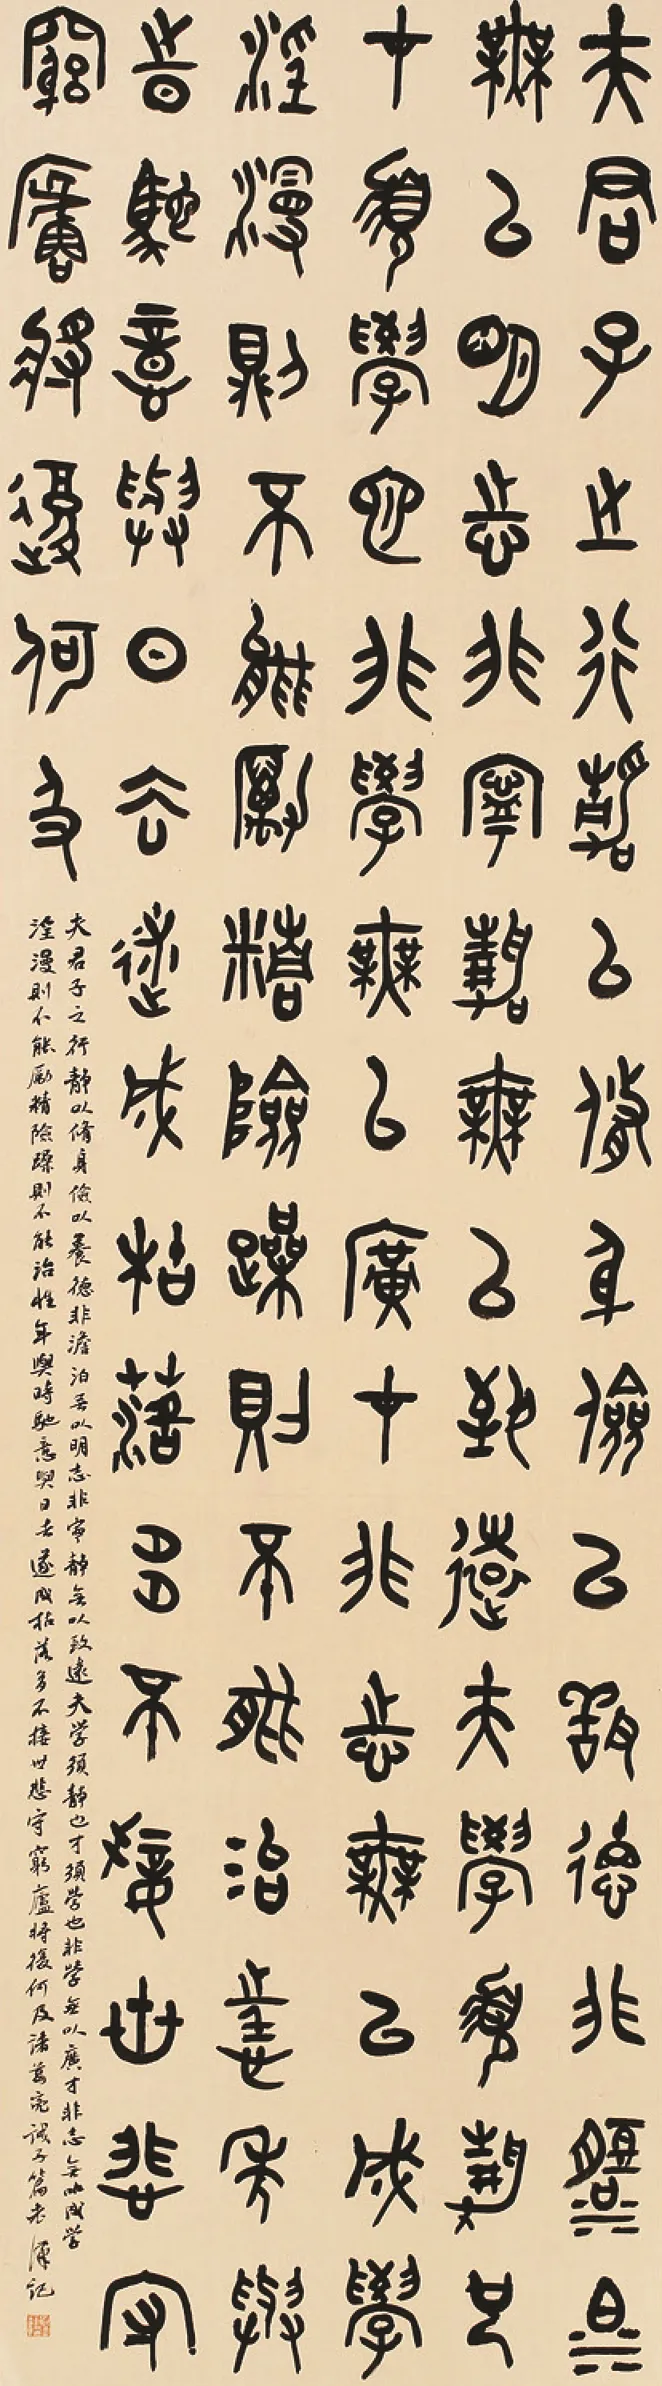 夫君子之行靜以脩身儉以養德非澹泊
無以明志非寧靜無以致遠夫學須靜也
才須學也非學無以廣才非志無以成學
淫漫則不能勵精險躁則不能治性年與
時馳意與日去遂成枯落多不接世悲守
窮廬將復何及
夫君子之行靜以脩身儉以養德非澹泊無以明志非寧靜無以致遠夫学須靜也才須学也非学無以廣才非志無以成学
淫漫則不能勵精險躁則不能治性年與時馳意與日去遂成枯落多不接世悲守窮廬將復何及諸葛亮誡子篇 記